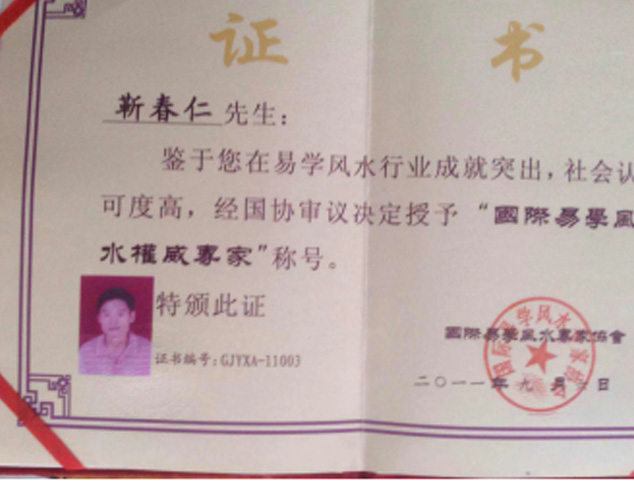 证书
靳春仁先生:
鉴于您在易学风水行业成就突出,社会认
可度高,经国协审议决定授予“國際易學風
水權威專家”称号。
特颁此证
证书编号:GJYXA-11003
國際易學風水專家協會
二〇一一年九月 日